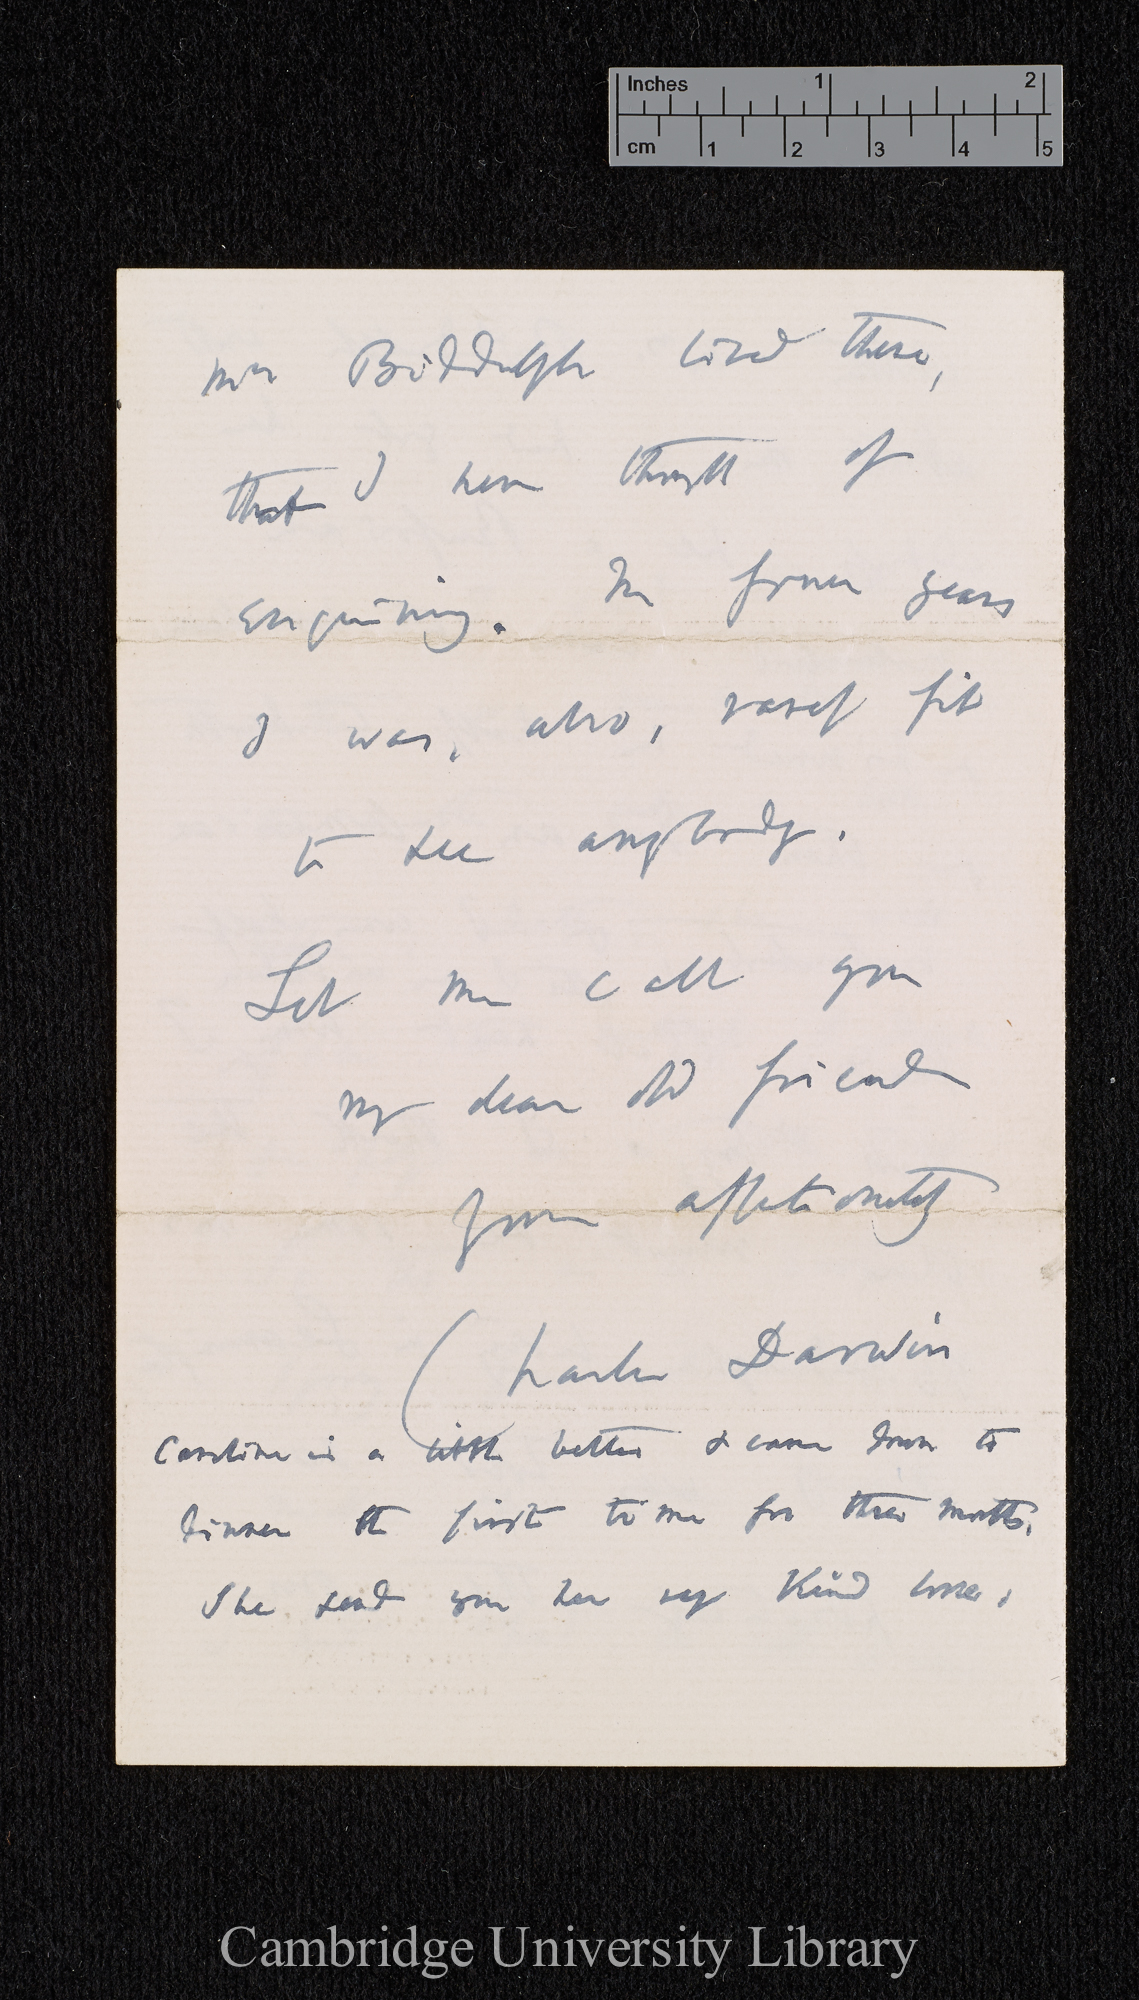 Inches 1 2
cm 1 2 3 4 5
Mrs Biddulph lived there,
that I never thought of
enquiring. In former years
I was, also, rarely fit
to see anybody.
Let me call you
my dear old friend
Yours affectionately
Charles Darwin
Caroline is a little better & came down to
dinner the first time for three months.
She sends you her very kind love.
Cambridge University Library